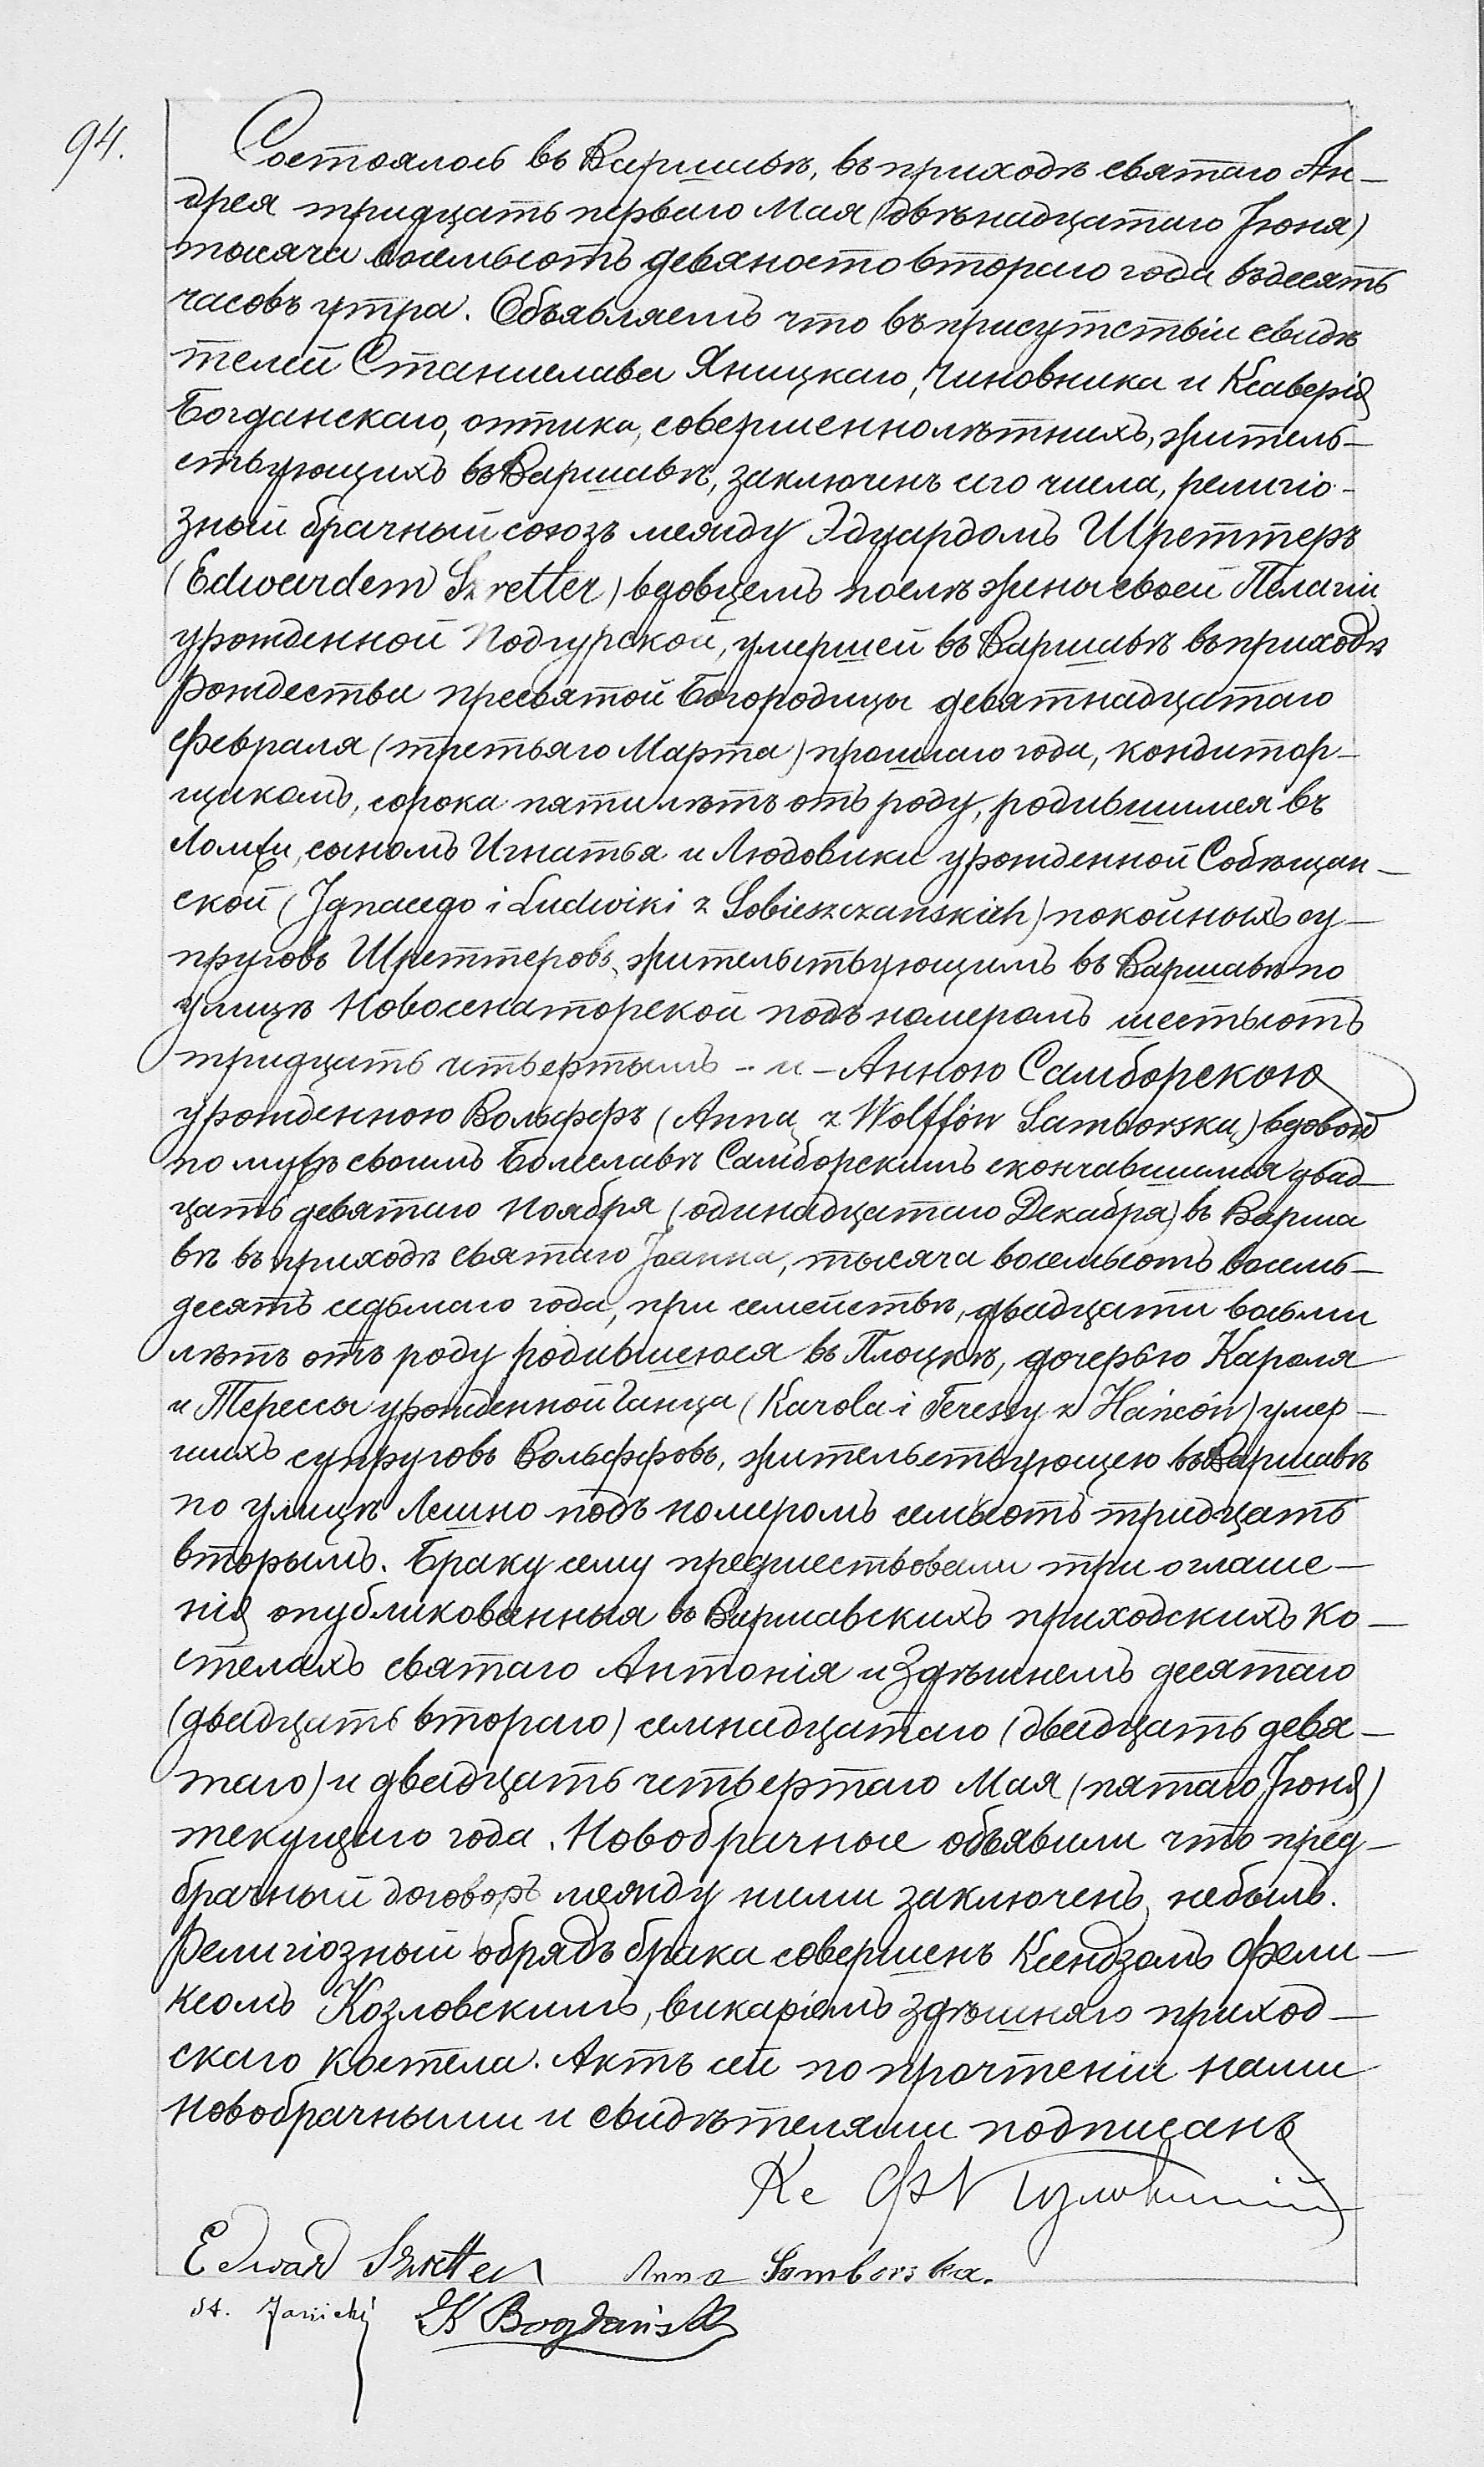 94.
Состоялось въ Варшавѣ, въ приходѣ святаго Ан-
дрея тридцать перваго Мая (двѣнадцатаго Іюня)
тысяча восемьсотъ девяносто втораго года въ десять
часовъ утра. Объявляемъ что въ присутствіи свидѣ
телей Станислава Яницкаго, чиновника и Ксаверія
Богданскаго, оптика, совершеннолѣтнихъ, житель-
ствующихъ въ Варшавѣ, заключенъ сего числа, религіо-
зный брачный союзъ между Эдуардомъ Шреттеръ
(Edwardem Szretter) вдовцемъ послѣ жены своей Пелагіи
урожденной Подгурской, умершей въ Варшавѣ въ приходѣ
Рождества пресвятой Богородицы девятнадцатаго
Февраля (третьяго Марта) прошлаго года, кондитор-
щикомъ, сорока пяти лѣтъ отъ роду, родившимся въ
Ломжи, сыномъ Игнатья и Людовики урожденной Собѣщан-
ской (Ignacego i Ludwiki z Sobieszczanskich) покойныхъ су-
пруговъ Шреттеровъ, жительствующимъ въ Варшавѣ по
улицѣ Новосенаторской подъ номеромъ шестьсотъ
тридцать четвертымъ - и - Анною Самборскою
урожденною Вольффъ (Anną z Wolffów Samborską) вдовой
по мужѣ своимъ Болеславѣ Самборскимъ скончавшимся двад-
цать девятаго Ноября (одинадцатаго Декабря) въ Варша
вѣ въ приходѣ святаго Іоанна, тысяча восемьсотъ восемь-
десятъ седьмаго года, при семействѣ, двадцати восьми
лѣтъ отъ роду родившеюся въ Плоцкѣ, дочерью Кароля
и Терессы урожденной Ганца (Karola i Teressy z Hańców) умер-
шихъ супруговъ Вольффовъ, жительствующею въ Варшавѣ
по улицѣ Лешно подъ номеромъ семьсотъ тридцать
вторымъ. Браку сему предшествовали три оглаше-
нія опубликованныя въ Варшавскихъ приходскихъ ко-
стелахъ святаго Антонія и Здѣшнемъ десятаго
(двадцать втораго) семнадцатаго (двадцать девя-
таго) и двадцать четвертаго Мая (пятаго Іюня)
текущаго года. Новобрачные объявили что пред-
брачный договоръ между ними заключенъ не былъ.
Религіозный обрядъ брака совершенъ Ксендзомъ Фели-
ксомъ Козловскимъ, викаріемъ здѣшняго приход-
скаго костела. Актъ сей по прочтеніи нами
новобрачными и свидѣтелями подписанъ
Кс
Edward Szretter Anna Samborska.
St. Janicki K Bogdański